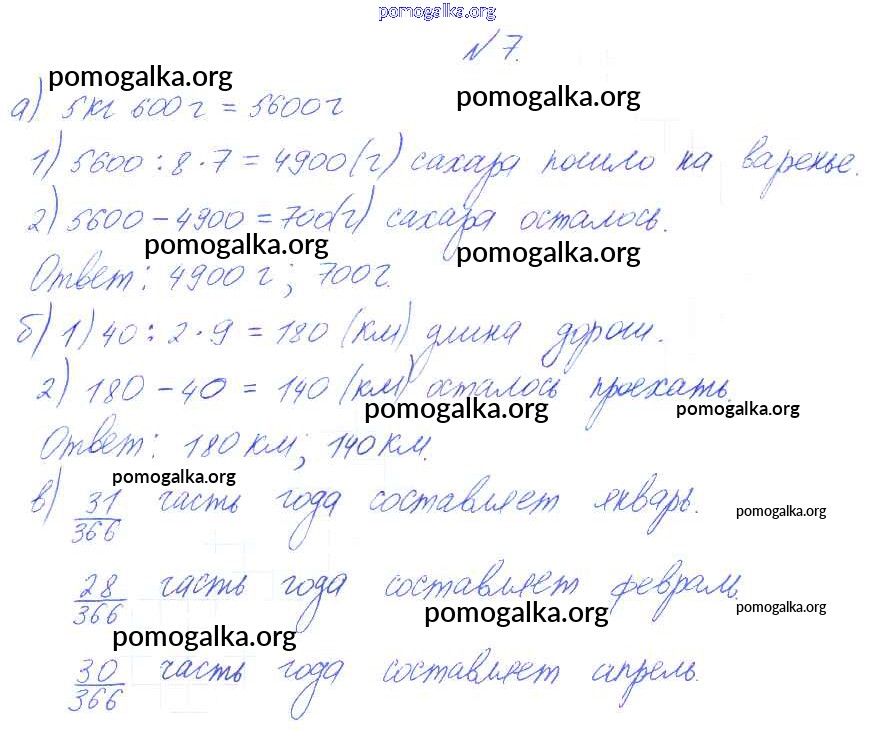 pomogalka.org
№7.
pomogalka.org
pomogalka.org
а) 5кг 600г = 5600г
1) 5600 : 8 · 7 = 4900 (г) сахара пошло на варенье.
2) 5600 – 4900 = 700(г) сахара осталось.
pomogalka.org
pomogalka.org
Ответ: 4900 г; 700г.
б) 1) 40 : 2 · 9 = 180 (км) длина дороги.
2) 180 – 40 = 140 (км) осталось проехать.
pomogalka.org
pomogalka.org
Ответ: 180 км; 140 км.
pomogalka.org
в) 31/366 часть года составляет январь.
pomogalka.org
28/366 часть года составляет февраль.
pomogalka.org
pomogalka.org
pomogalka.org
30/366 часть года составляет апрель.